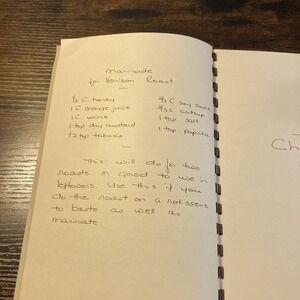 Marinade
for Venison Roast
1/2 C honey
1 C orange juice
1 C wine
1 tsp dry mustard
1/2 tsp tabasco
2/3 C soy sauce
2/3 C catsup
1 tsp salt
1 tsp paprika
This will do for two
roasts or good to use in
leftovers. Use this if you
do the roast on a rotisserie
to baste as well as
marinate
Ch